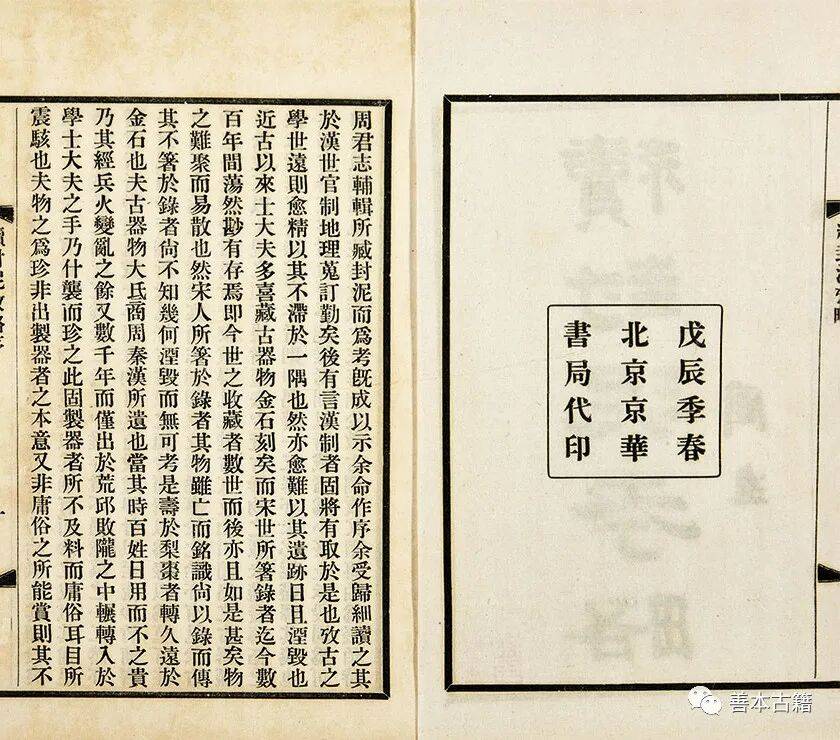 戊辰季春
北京京華
書局代印
周君志輔輯所臧封泥而爲考旣成以示余命作序余受歸細讀之其
於漢世官制地理蒐訂勤矣後有言漢制者固將有取於是也攷古之
學世遠則愈精以其不滯於一隅也然亦愈難以其遺跡日且湮毀也
近古以來士大夫多喜藏古器物金石刻矣而宋世所箸錄者迄今數
百年間蕩然尠有存焉卽今世之收藏者數世而後亦且如是甚矣物
之難聚而易散也然宋人所箸於錄者其物雖亡而銘識尙以錄而傳
其不箸於錄者尙不知幾何湮毀而無可考是壽於梨棗者轉久遠於
金石也夫古器物大氐商周秦漢所遺也當其時百姓日用而不之貴
乃其經兵火變亂之餘又數千年而僅出於荒邱敗隴之中輾轉入於
學士大夫之手乃什襲而珍之此固製器者所不及料而庸俗耳目所
震駭也夫物之爲珍非出製器者之本意又非庸俗之所能賞則其不
善本古籍